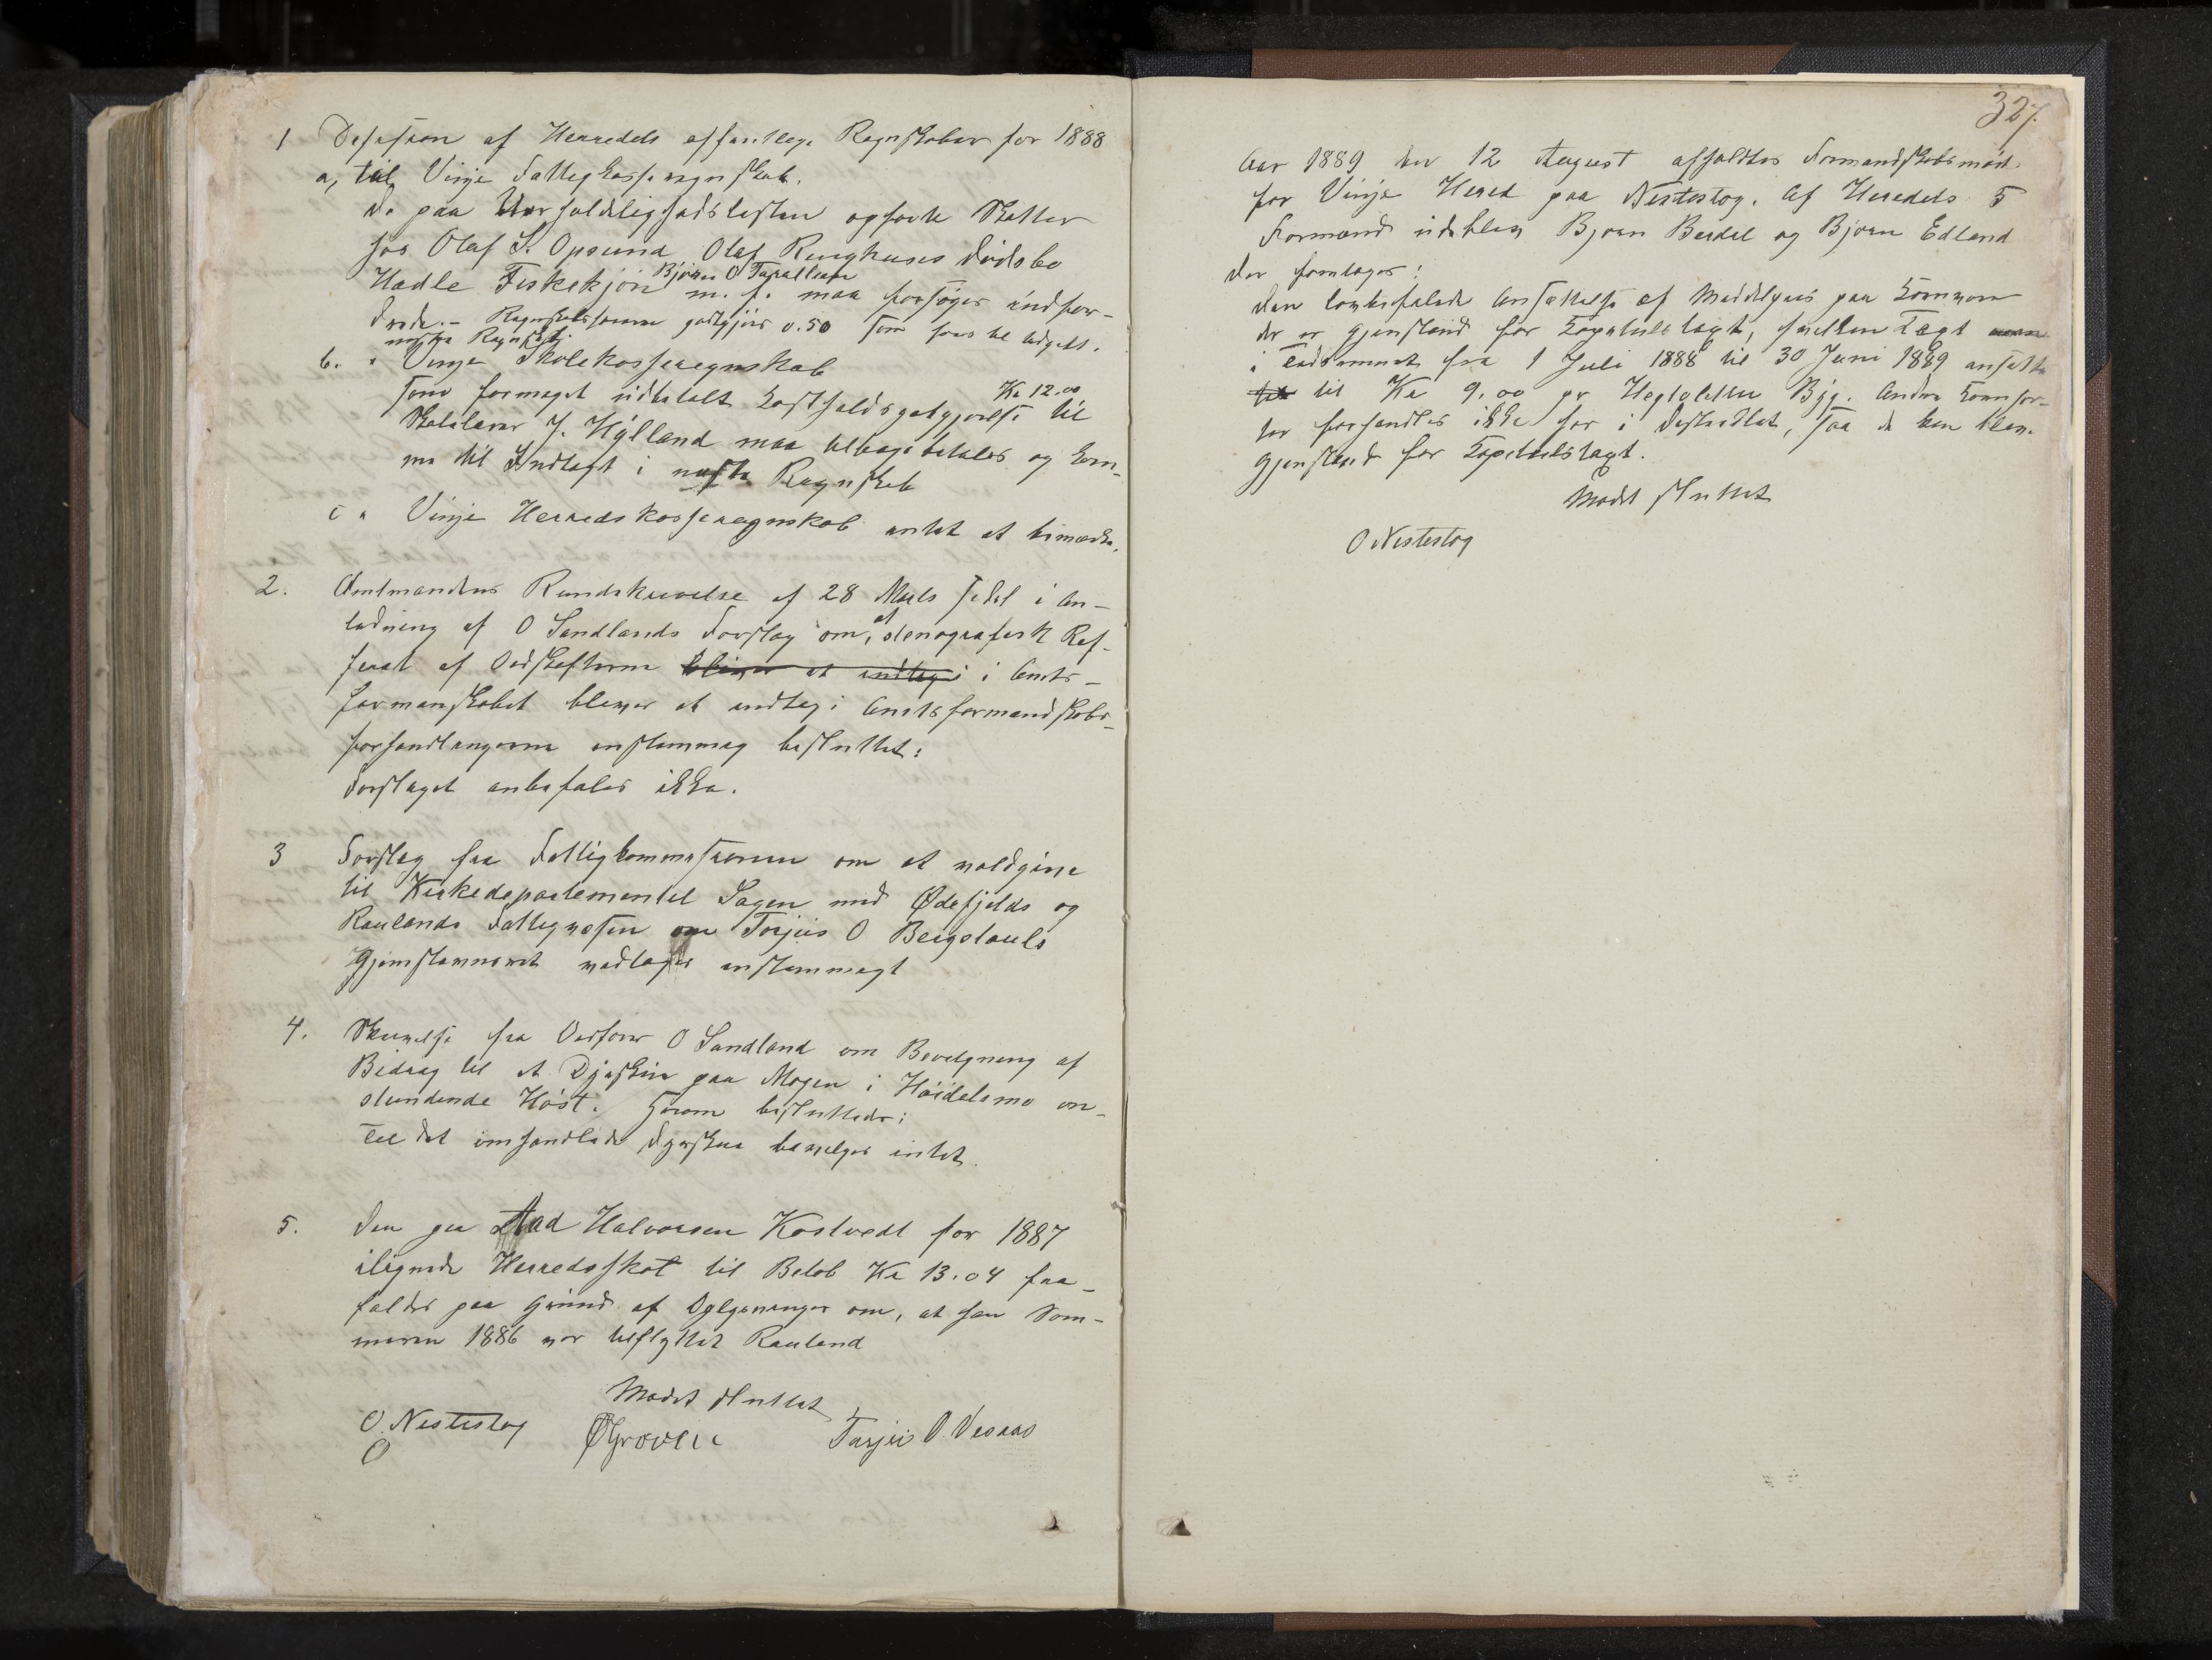 1 Desision af Herredets offentlige Regnskaber for 1888
a, til Vinje Fattigkasseregnskab.
De paa Uerholdelighedslisten opførte Skatter
hos Olaf S. Opsund Olaf Rughuses Dødsbo
Bjørn O
Hadle Fiskekjøn m. fl. maa forsøges indfor-
drede. – godtgjøres 0.50 som føres til Udgift.
næste Regnskab
b. " Vinje Skolekasseregnskab
Kr 12.00
som formeget udbetalt Kostholdsgodtgjørelse til
Skolelærer J. Hylland maa tilbagebetales og kom-
me til Indtægt i næste Regnskab
c " Vinje Herredskasseregnskab intet at bemærke.
2. Amtmandens Rundskrivelse af 28 Marts sidst i An-
ledning af O Sandlands Forslag om, at stenografisk Ref-
ferat af Ordskifterne bliver at indtage i i Amts-
formandskabet bliver at indtage i Amtsformandskabs-
forhandlingerne enstemmig besluttet:
Forslaget anbefales ikke.
3 Forslag fra Fattigkommissionen om at voldgive
til Kirkedepartementet Sagen med Ødefjelds og
Raulands Fattigvæsen om Torjus O Bergstauls
Hjemstavnsret vedtages enstemmigt
4. Skrivelse fra Ordfører O Sandland om Bevilgning af
Bidrag til et Dyrskue paa Mogen i Høidalsmo an-
stundende Høst. Herom besluttedes:
Til det omhandlede Dyrskue bevilges intet.
5. Den paa Aad Halvorsen Kostvedt for 1887
ilignede Herredsskat til Beløb Kr 13.04 fra-
faldes paa Grund af Oplysninger om, at han Som-
meren 1886 var udflyttet Rauland
Mødet sluttet
O. Nestestog ØGroven Tarjei O. Vesaas
327.
Aar 1889 den 12 August afholdtes Formandskabsmøde
for Vinje Hered paa Nestestog. Af Heredets 5
Formænd udeblev Bjørn Berdal og Bjørn Edland
Der foretoges:
Den lovbefalede Ansættelse af Middelpris paa Kornvarer
der er Gjenstand for Kapitelstagt, hvilken Tagt
i Tidsrummet fra 1 Juli 1888 til 30 Juni 1889 ansatte
til Kr 9.00 pr Hegtoliter Byg. Andre Kornsor-
ter forhandles ikke her i Distriktet, saa de kan blive
Gjenstand for Kapitelstagt.
Mødet sluttet
O Nestestog